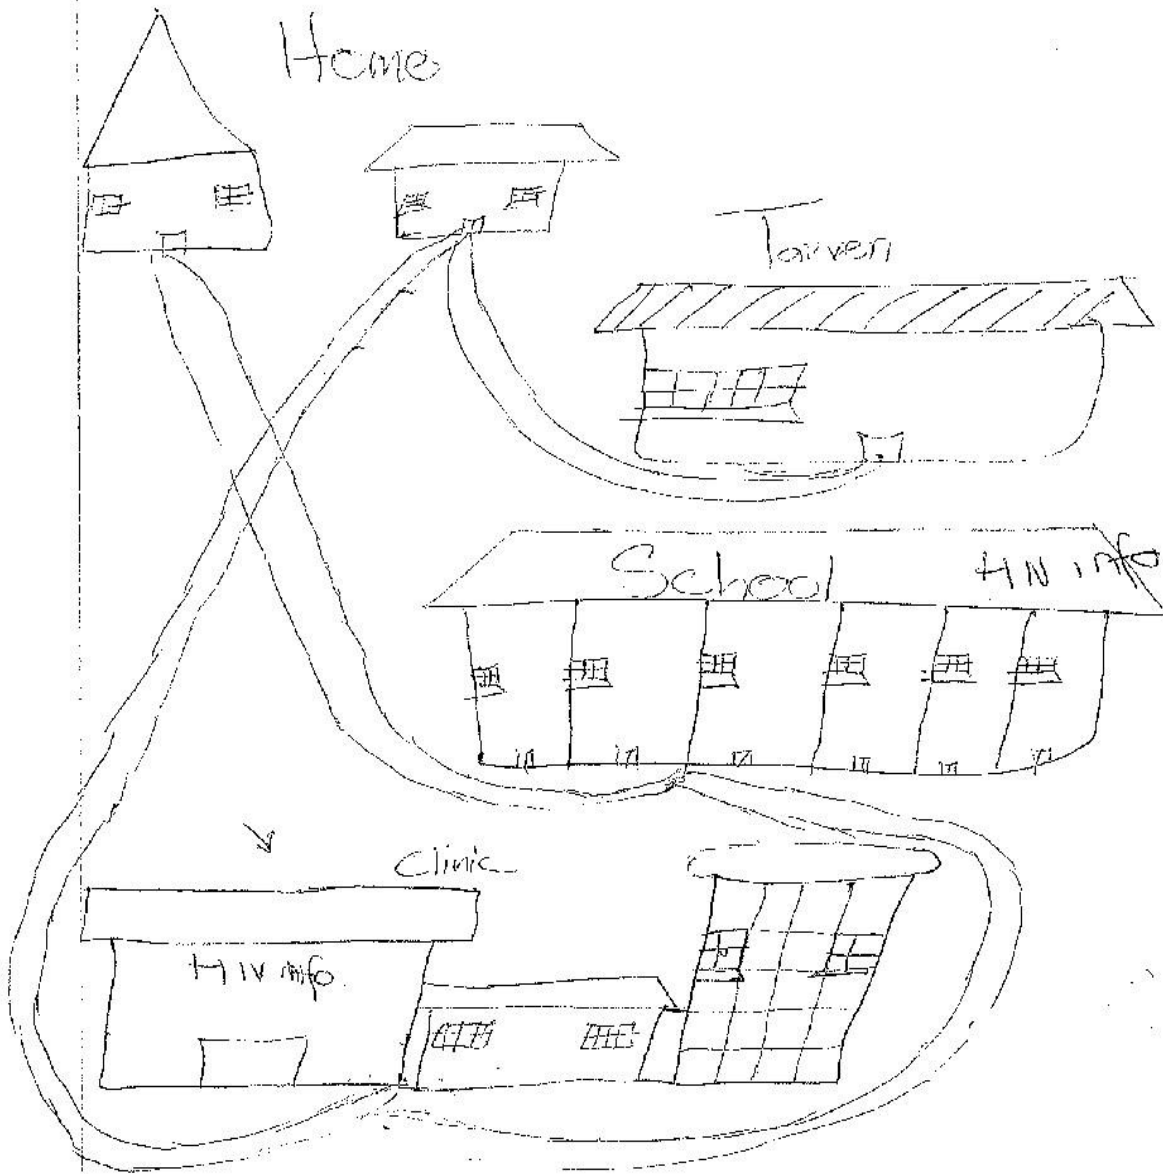 Home
Tarven
School
HIV info
Clinic
HIV info